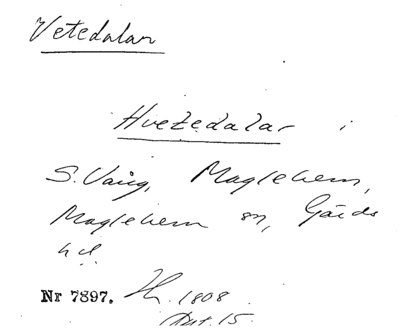 Vetedalar
Hvetedalar i
S. Vång, Maglehem,
Maglehem sn, Gärds
hd.
Nr 7897. 1808
15.